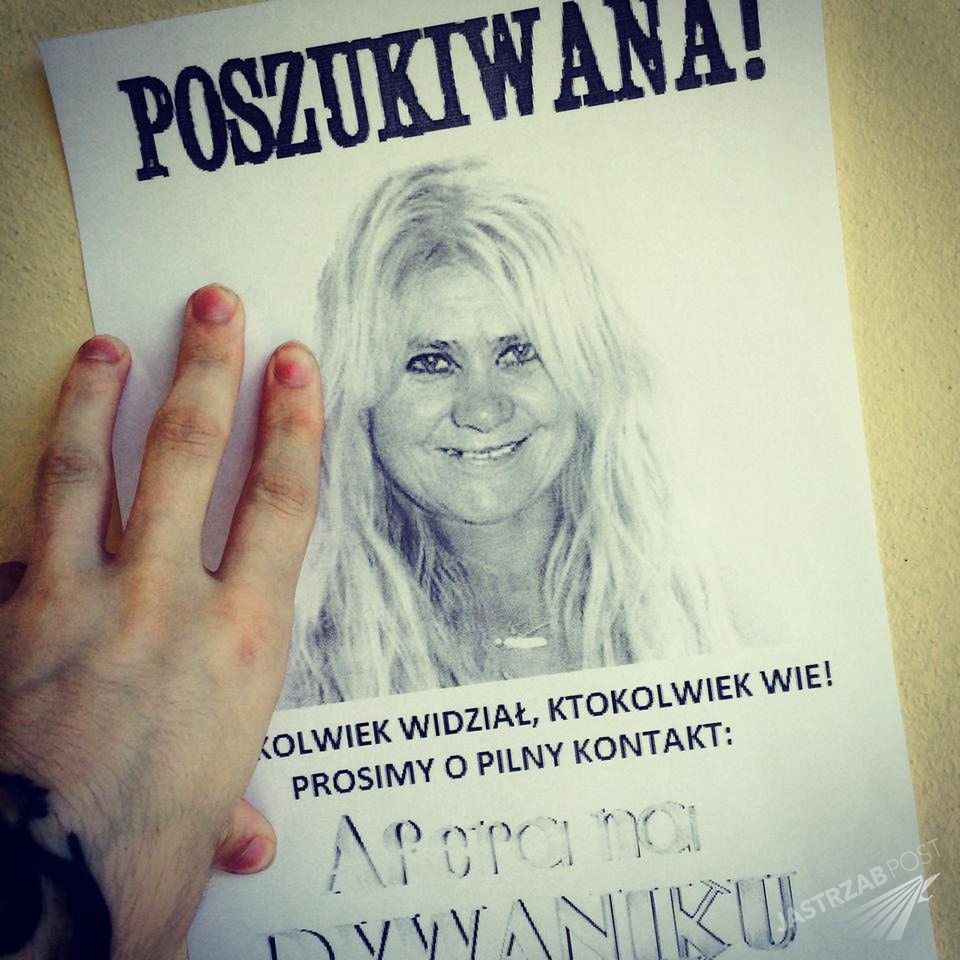 POSZUKIWANA!
KOLWIEK WIDZIAŁ, KTOKOLWIEK WIE!
PROSIMY O PILNY KONTAKT:
Afera na
DYWANIKU
JASTRZĄB POST